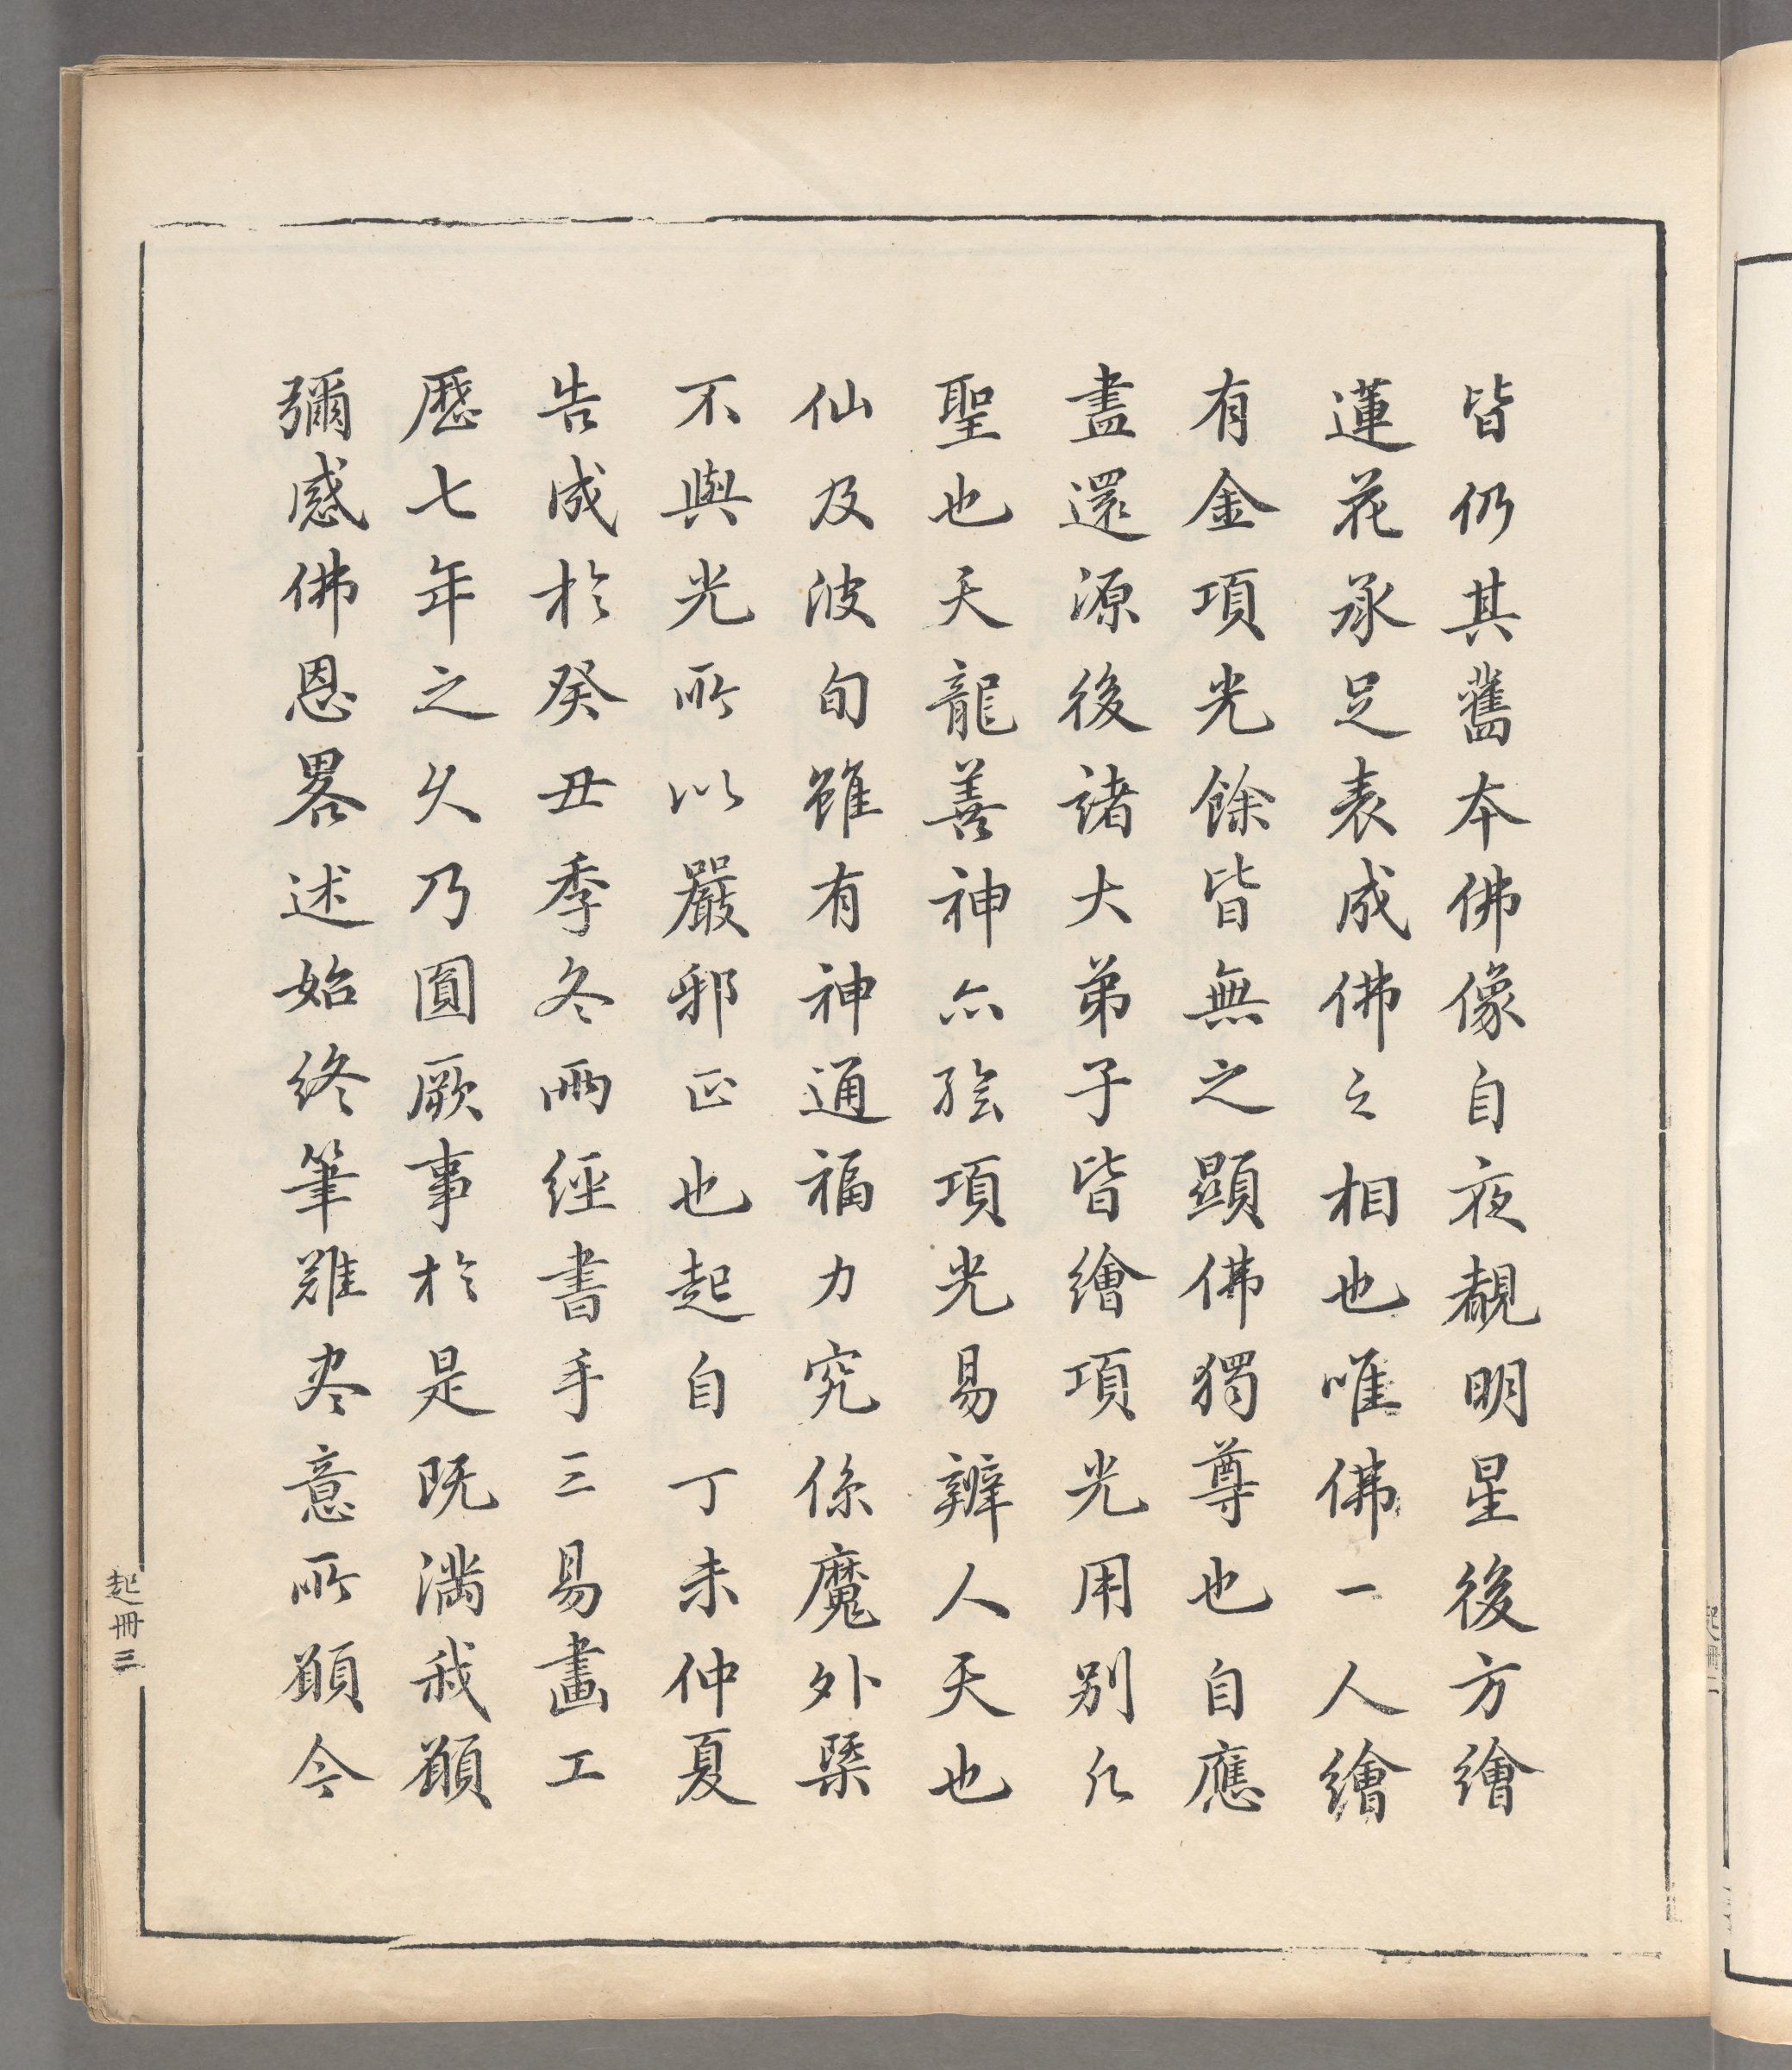 皆仍其舊本佛像自夜覩明星後方繪
蓮花承足表成佛之相也唯佛一人繪
有金項光餘皆無之顯佛獨尊也自應
盡還源後諸大弟子皆繪項光用别凡
聖也天龍善神亦繪項光易辨人天也
仙及波旬雖有神通福力究係魔外槩
不與光所以嚴邪正也起自丁未仲夏
告成於癸丑季冬兩經書手三易畫工
歷七年之久乃圓厥事於是既滿我願
彌感佛恩畧述始終筆難尽意所願今
起冊三